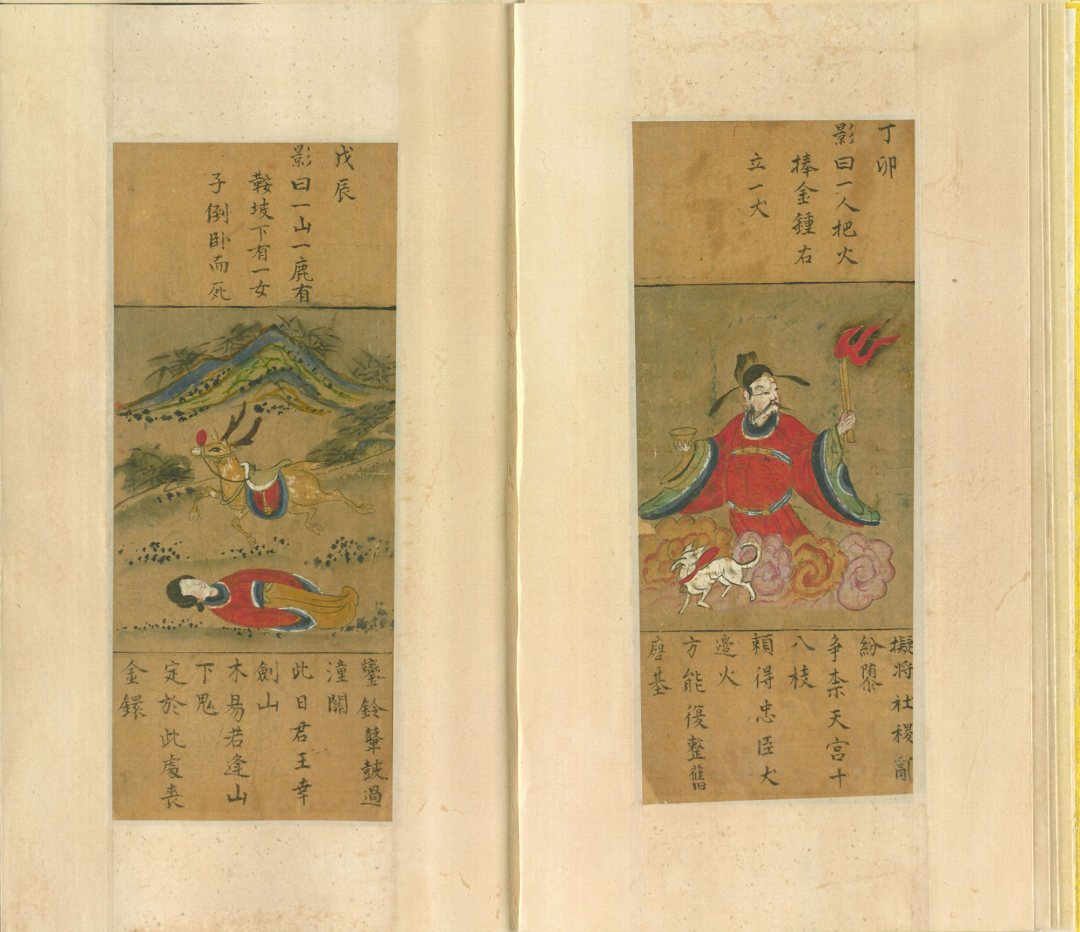 丁卯
影曰一人把火
捧金鍾右
立一犬
擬將社稷
紛
争柰天宮十
八枝
賴得忠臣犬
邉火
方能復整舊
唐基
戊辰
影曰一山一鹿有
鞍坡下有一女
子倒卧而死
鑾鈴鼙鼓過
潼關
此日君王幸
劍山
木易若逢山
下鬼
定於此處喪
金鐶